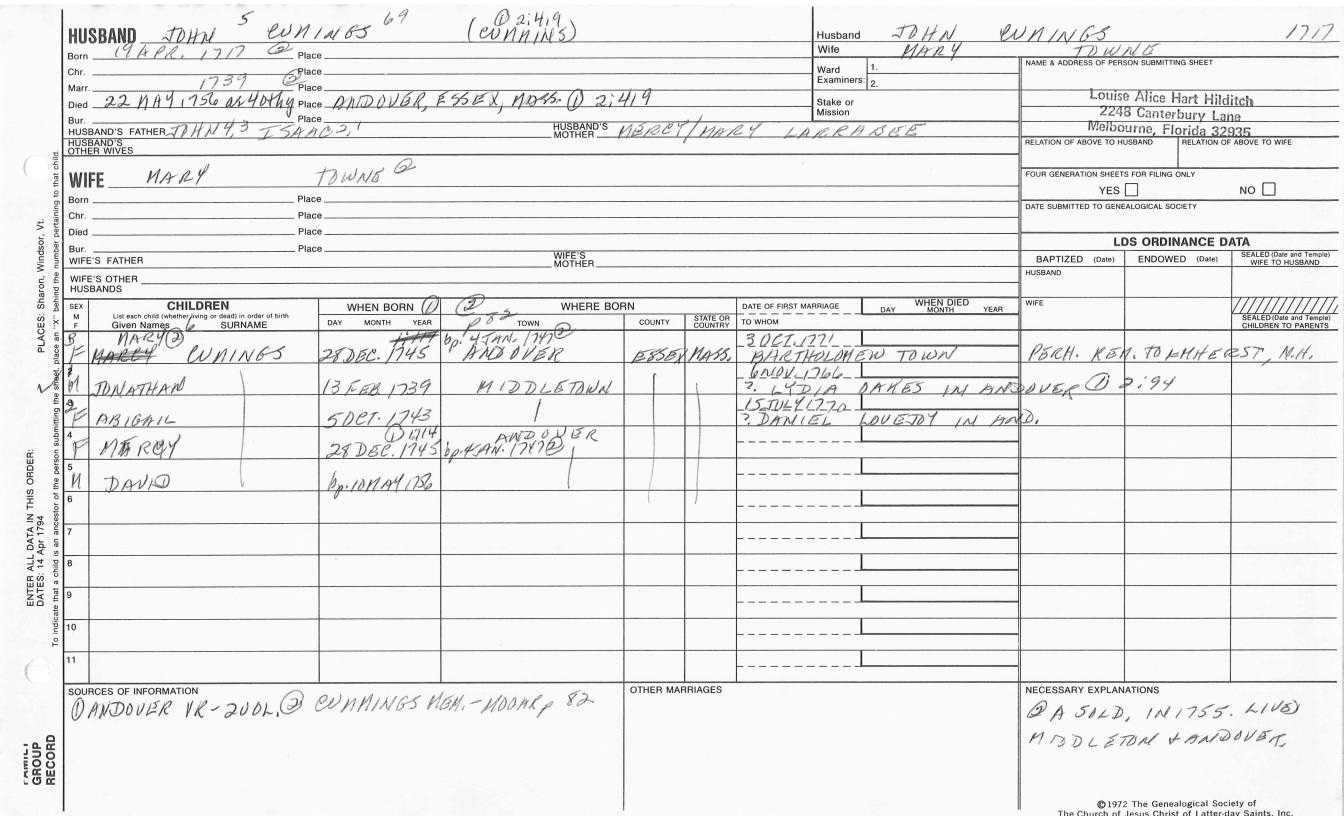 HUSBAND JOHN 5 CUMINGS 69 (CUMMINS) ① 2:419
Born 19 APR. 1717 ② Place
Chr. Place
Marr. 1739 ② Place
Died 22 MAY 1756 Place ANDOVER, ESSEX, MASS. ① 2:419
Bur. Place
HUSBAND'S FATHER JOHN 4,3 ISAAC 2,1 HUSBAND'S MOTHER MERCY/MARY LARRABEE
HUSBAND'S OTHER WIVES
Husband JOHN CUMINGS 1717
Wife MARY TOWNE
Ward Examiners: 1.
2.
Stake or Mission
NAME & ADDRESS OF PERSON SUBMITTING SHEET
Louise Alice Hart Hilditch
2248 Canterbury Lane
Melbourne, Florida 32935
RELATION OF ABOVE TO HUSBAND RELATION OF ABOVE TO WIFE
FOUR GENERATION SHEETS FOR FILING ONLY
YES NO
DATE SUBMITTED TO GENEALOGICAL SOCIETY
WIFE MARY TOWNE ②
Born Place
Chr. Place
Died Place
Bur. Place
WIFE'S FATHER WIFE'S MOTHER
WIFE'S OTHER HUSBANDS
LDS ORDINANCE DATA
BAPTIZED (Date) ENDOWED (Date) SEALED (Date and Temple) WIFE TO HUSBAND
HUSBAND
WIFE
SEALED (Date and Temple) CHILDREN TO PARENTS
SEX M F
CHILDREN
List each child (whether living or dead) in order of birth
Given Names 6 SURNAME
WHEN BORN ①
DAY MONTH YEAR
② p 82 WHERE BORN
TOWN COUNTY STATE OR COUNTRY
DATE OF FIRST MARRIAGE
TO WHOM
WHEN DIED
DAY MONTH YEAR
MARY ② bp. 4 JAN. 1747 ② 3 OCT. 1771
F MARCY CUMINGS 28 DEC. 1745 ANDOVER ESSEX MASS. BARTHOLOMEW TOWN PERH. REM. TO AMHERST, N.H.
6 NOV. 1766
M JONATHAN 13 FEB 1739 MIDDLETOWN ?. LYDIA OAKES IN ANDOVER ① 2:94
15 JULY 1770
F ABIGAIL 5 OCT. 1743 ?. DANIEL LOVEJOY IN AND.
4 ① ANDOVER
F MERCY 28 DEC. 1745 bp. 4 JAN. 1747 ②
5
M DAVID bp. 10 MAY 1756
6
7
8
9
10
11
SOURCES OF INFORMATION
① ANDOVER VR-2VOL. ② CUMMINGS MEM.-MOOAR p 82
OTHER MARRIAGES
NECESSARY EXPLANATIONS
② A SOLD, IN 1755. LIVED
MIDDLETON & ANDOVER.
©1972 The Genealogical Society of
The Church of Jesus Christ of Latter-day Saints, Inc.
ENTER ALL DATA IN THIS ORDER:
DATES: 14 Apr 1794 PLACES: Sharon, Windsor, Vt.
To indicate that a child is an ancestor of the person submitting the sheet, place an "X" behind the number pertaining to that child.
FAMILY GROUP RECORD